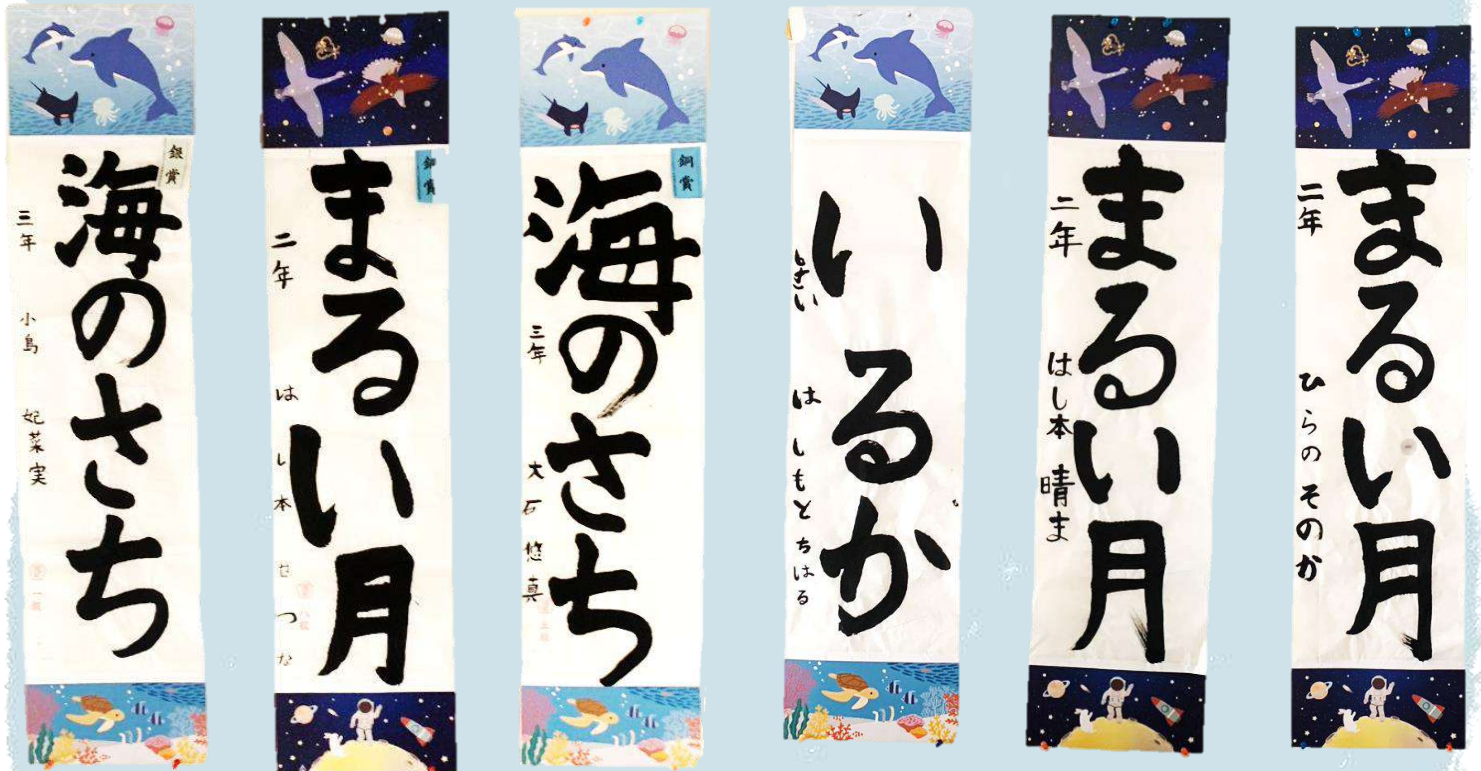 銀賞
海のさち
三年 小島 妃菜実
銅賞
まるい月
二年 はし本 せつな
銅賞
海のさち
三年 大石 悠真
いるか
はしもと ちはる
まるい月
二年 はし本 晴ま
まるい月
二年 ひらの そのか